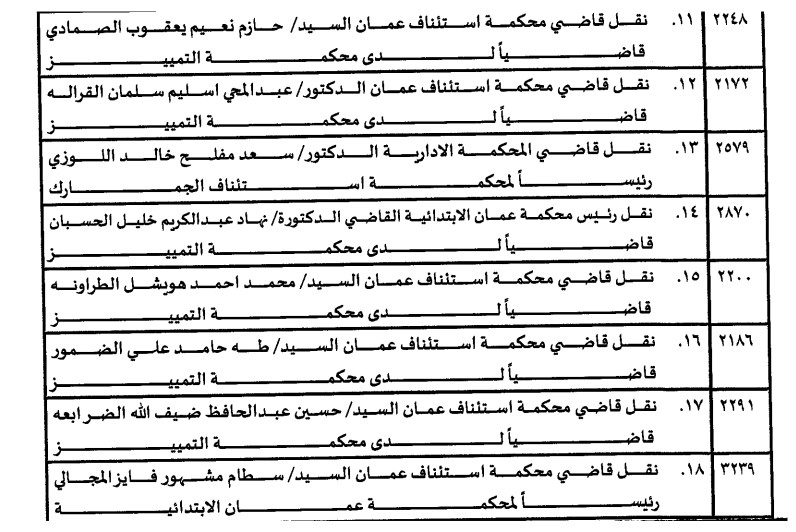 ٢٢٤٨ ١١. نقل قاضي محكمة استئناف عمان السيد/ حازم نعيم يعقوب الصمادي
قاضياً لدى محكمة التمييز
٢١٧٢ ١٢. نقل قاضي محكمة استئناف عمان الدكتور/ عبدالمحي اسليم سلمان القراله
قاضياً لدى محكمة التمييز
٢٥٧٩ ١٣. نقل قاضي المحكمة الادارية الدكتور/ سعد مفلح خالد اللوزي
رئيساً لمحكمة استئناف الجمارك
٢٨٧٠ ١٤. نقل رئيس محكمة عمان الابتدائية القاضي الدكتورة/ نهاد عبدالكريم خليل الحسبان
قاضياً لدى محكمة التمييز
٢٢٠٠ ١٥. نقل قاضي محكمة استئناف عمان السيد/ محمد احمد هويشل الطراونه
قاضياً لدى محكمة التمييز
٢١٨٦ ١٦. نقل قاضي محكمة استئناف عمان السيد/ طه حامد علي الضمور
قاضياً لدى محكمة التمييز
٢٢٩١ ١٧. نقل قاضي محكمة استئناف عمان السيد/ حسين عبدالحافظ ضيف الله الضرابعه
قاضياً لدى محكمة التمييز
٣٢٣٩ ١٨. نقل قاضي محكمة استئناف عمان السيد/ سطام مشهور فايز المجالي
رئيساً لمحكمة عمان الابتدائية